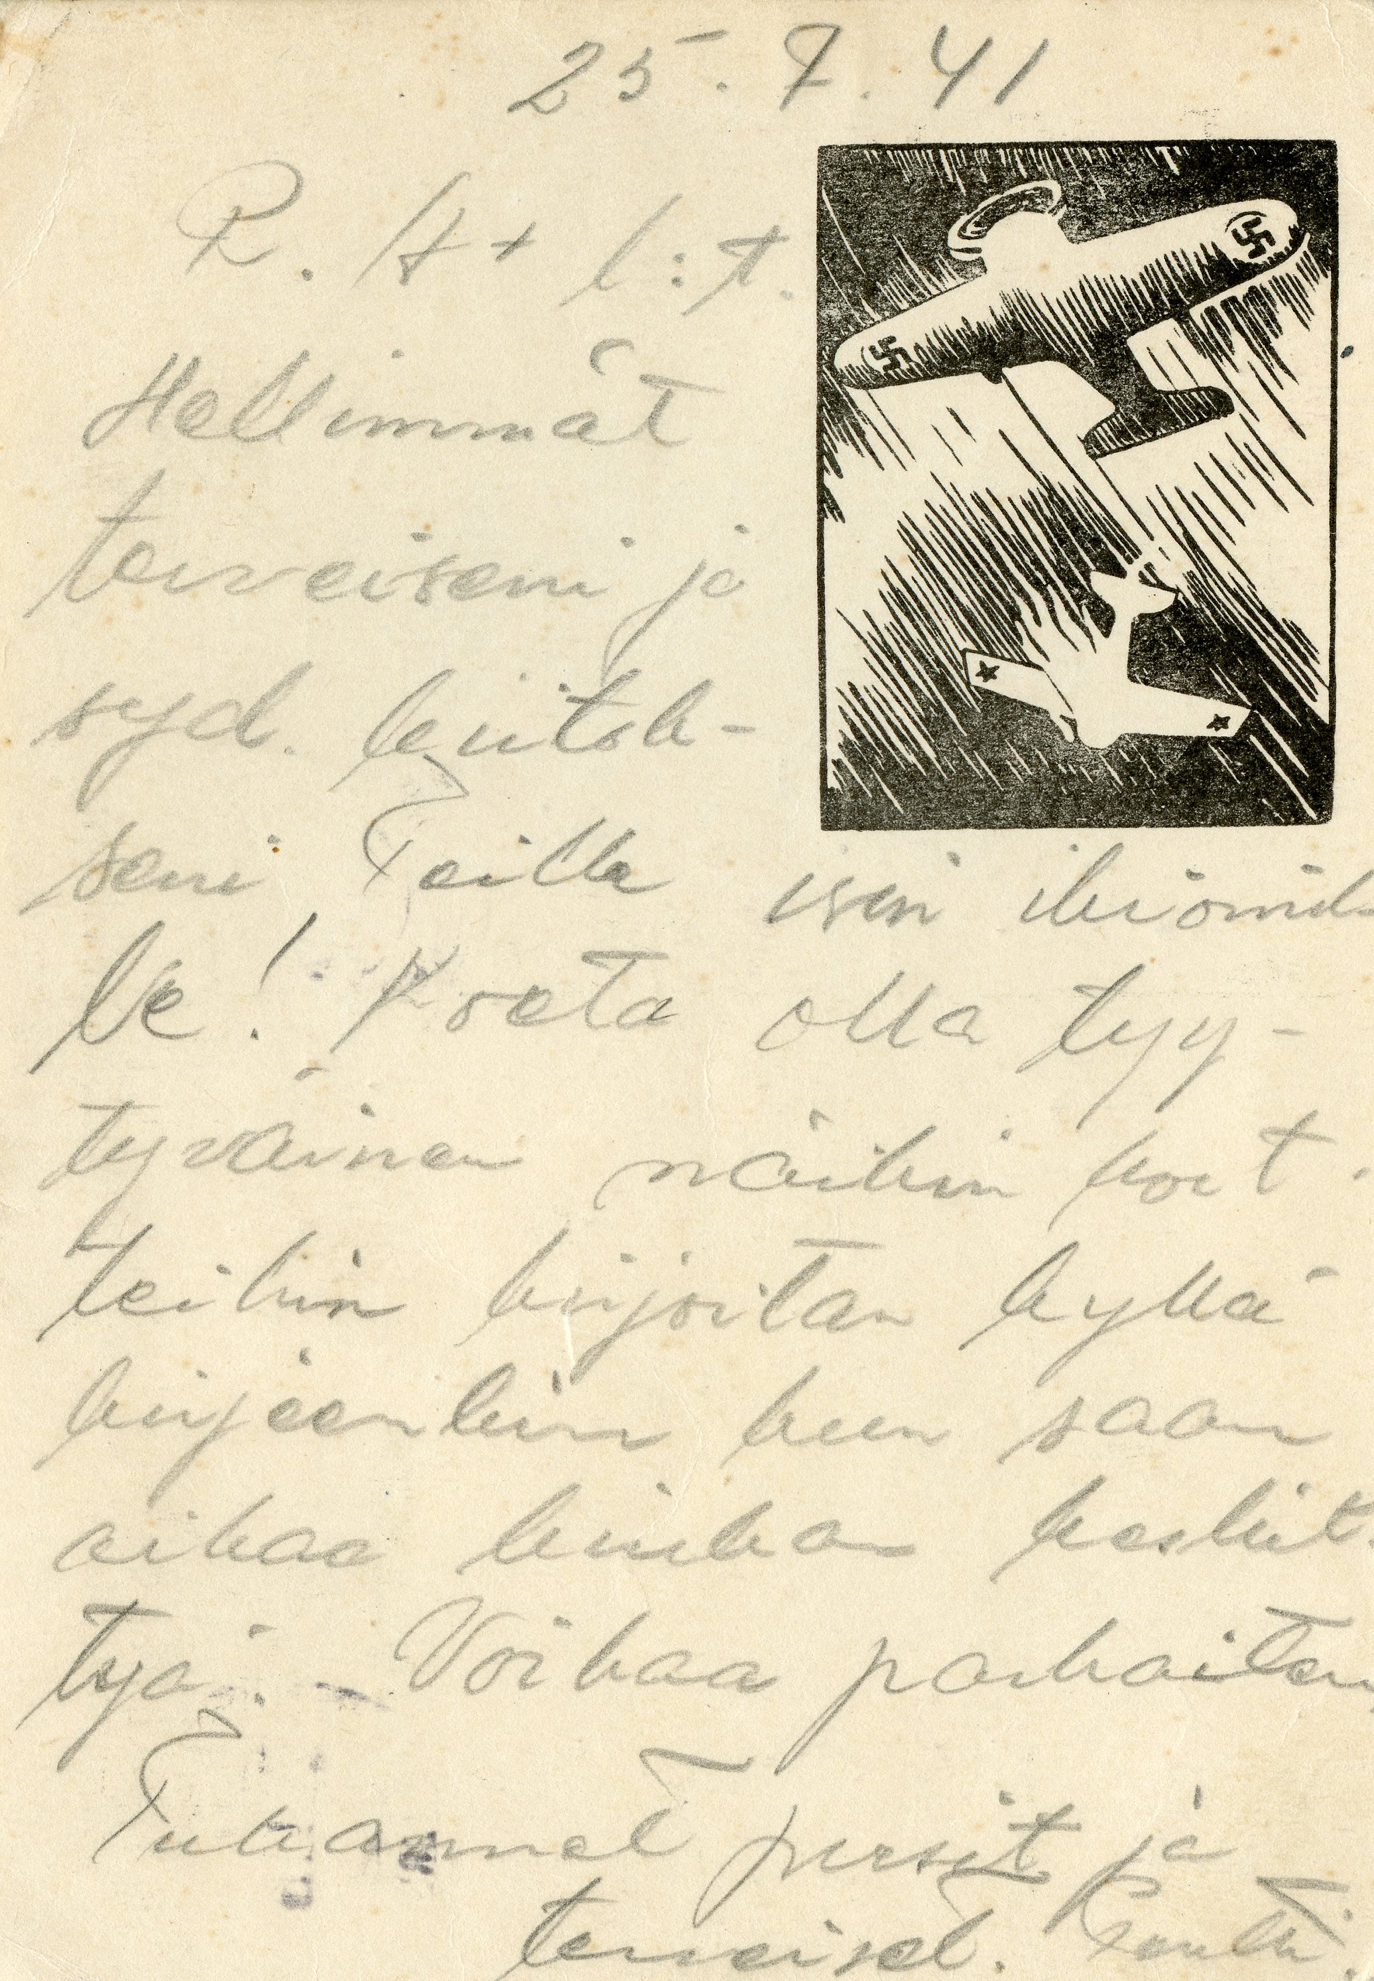 25.7.41
R. H + l:t.
Hellimmät
terveiseni ja
syd. kiitok-
seni Teille
isen ikiomil-
le! Koeta olla tyy-
tyväinen näihin kort-
teihin kirjoitan kyllä
kirjeenkin kun saan
aikaa hiukan keskit-
tyä. Voikaa parhaiten
Tuhannet pusit ja
terveiset. Pentti.